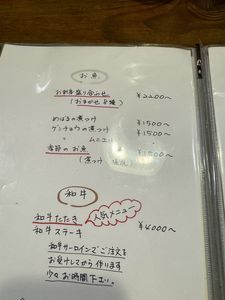 お魚
お刺身盛り合わせ ¥2200〜
(おまかせ5種)
めばるの煮つけ ¥1500〜
ゲンチョウの煮つけ ¥1500〜
〃 ムニエル
季節のお魚 ¥1500〜
(煮つけ 塩焼)
和牛
人気メニュー
和牛たたき
和牛ステーキ ¥4000〜
和牛サーロインでご注文を
お受けしてから作ります
少々お時間下さい。